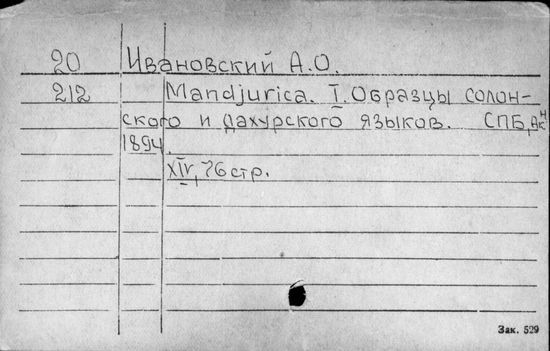 20 Ивановский А.О.
212 Mandjurica. I. Образцы солон-
ского и дахурского языков. СПБ, АкН
1894.
XIV, 76 стр.
Зак. 529